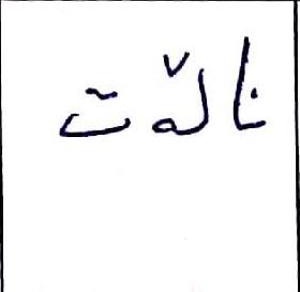 ناڵەت